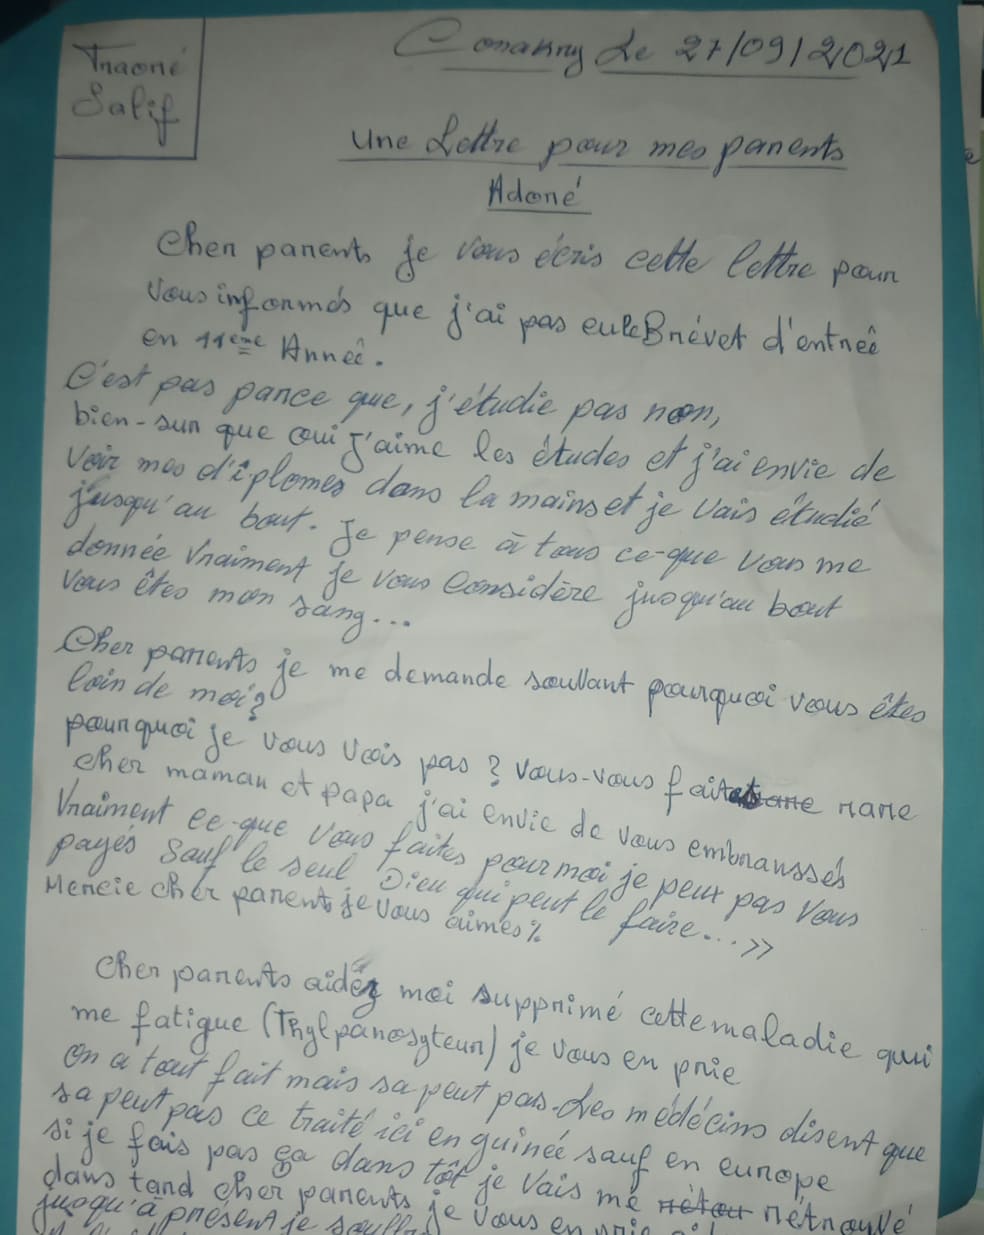 Traoré
Salif
Conakry Le 27/09/2021
Une Lettre pour mes parents
Adoré
Cher parents je vous écris cette lettre pour
Vous informés que j'ai pas eu le Brévet d'entreê
en 11ème Anneê.
C'est pas parce que, j'étudie pas non,
bien-sur que oui j'aime les études et j'ai envie de
Voir mes d'iplomes dans la mains et je vais étudié
jusqu'au bout. Je pense à tous ce-que vous me
donnée Vraiment je vous Considère jusqu'au bout
Vous êtes mon sang...
Cher parents je me demande souvant pourquoi vous êtes
loin de moi?
pourquoi je vous vois pas? Vous-vous faites rare
cher maman et papa j'ai envie de vous embraussés
Vraiment ce-que vous faites pour moi je peux pas vous
payés Sauf le seul Dieu qui peut le faire...>>
Mercie cher parents je vous aimes%
Cher parents aidéz moi supprimé cette maladie qui
me fatigue (Thylparosyteur) je vous en prie
On a tout fait mais sa peut pas. Les médécins disent que
sa peut pas ce traité ici en guinée sauf en europe
si je fais pas ça dans tôt je vais me rétrouvé
dans tand cher parents je vous en prie
jusqu'à présent je